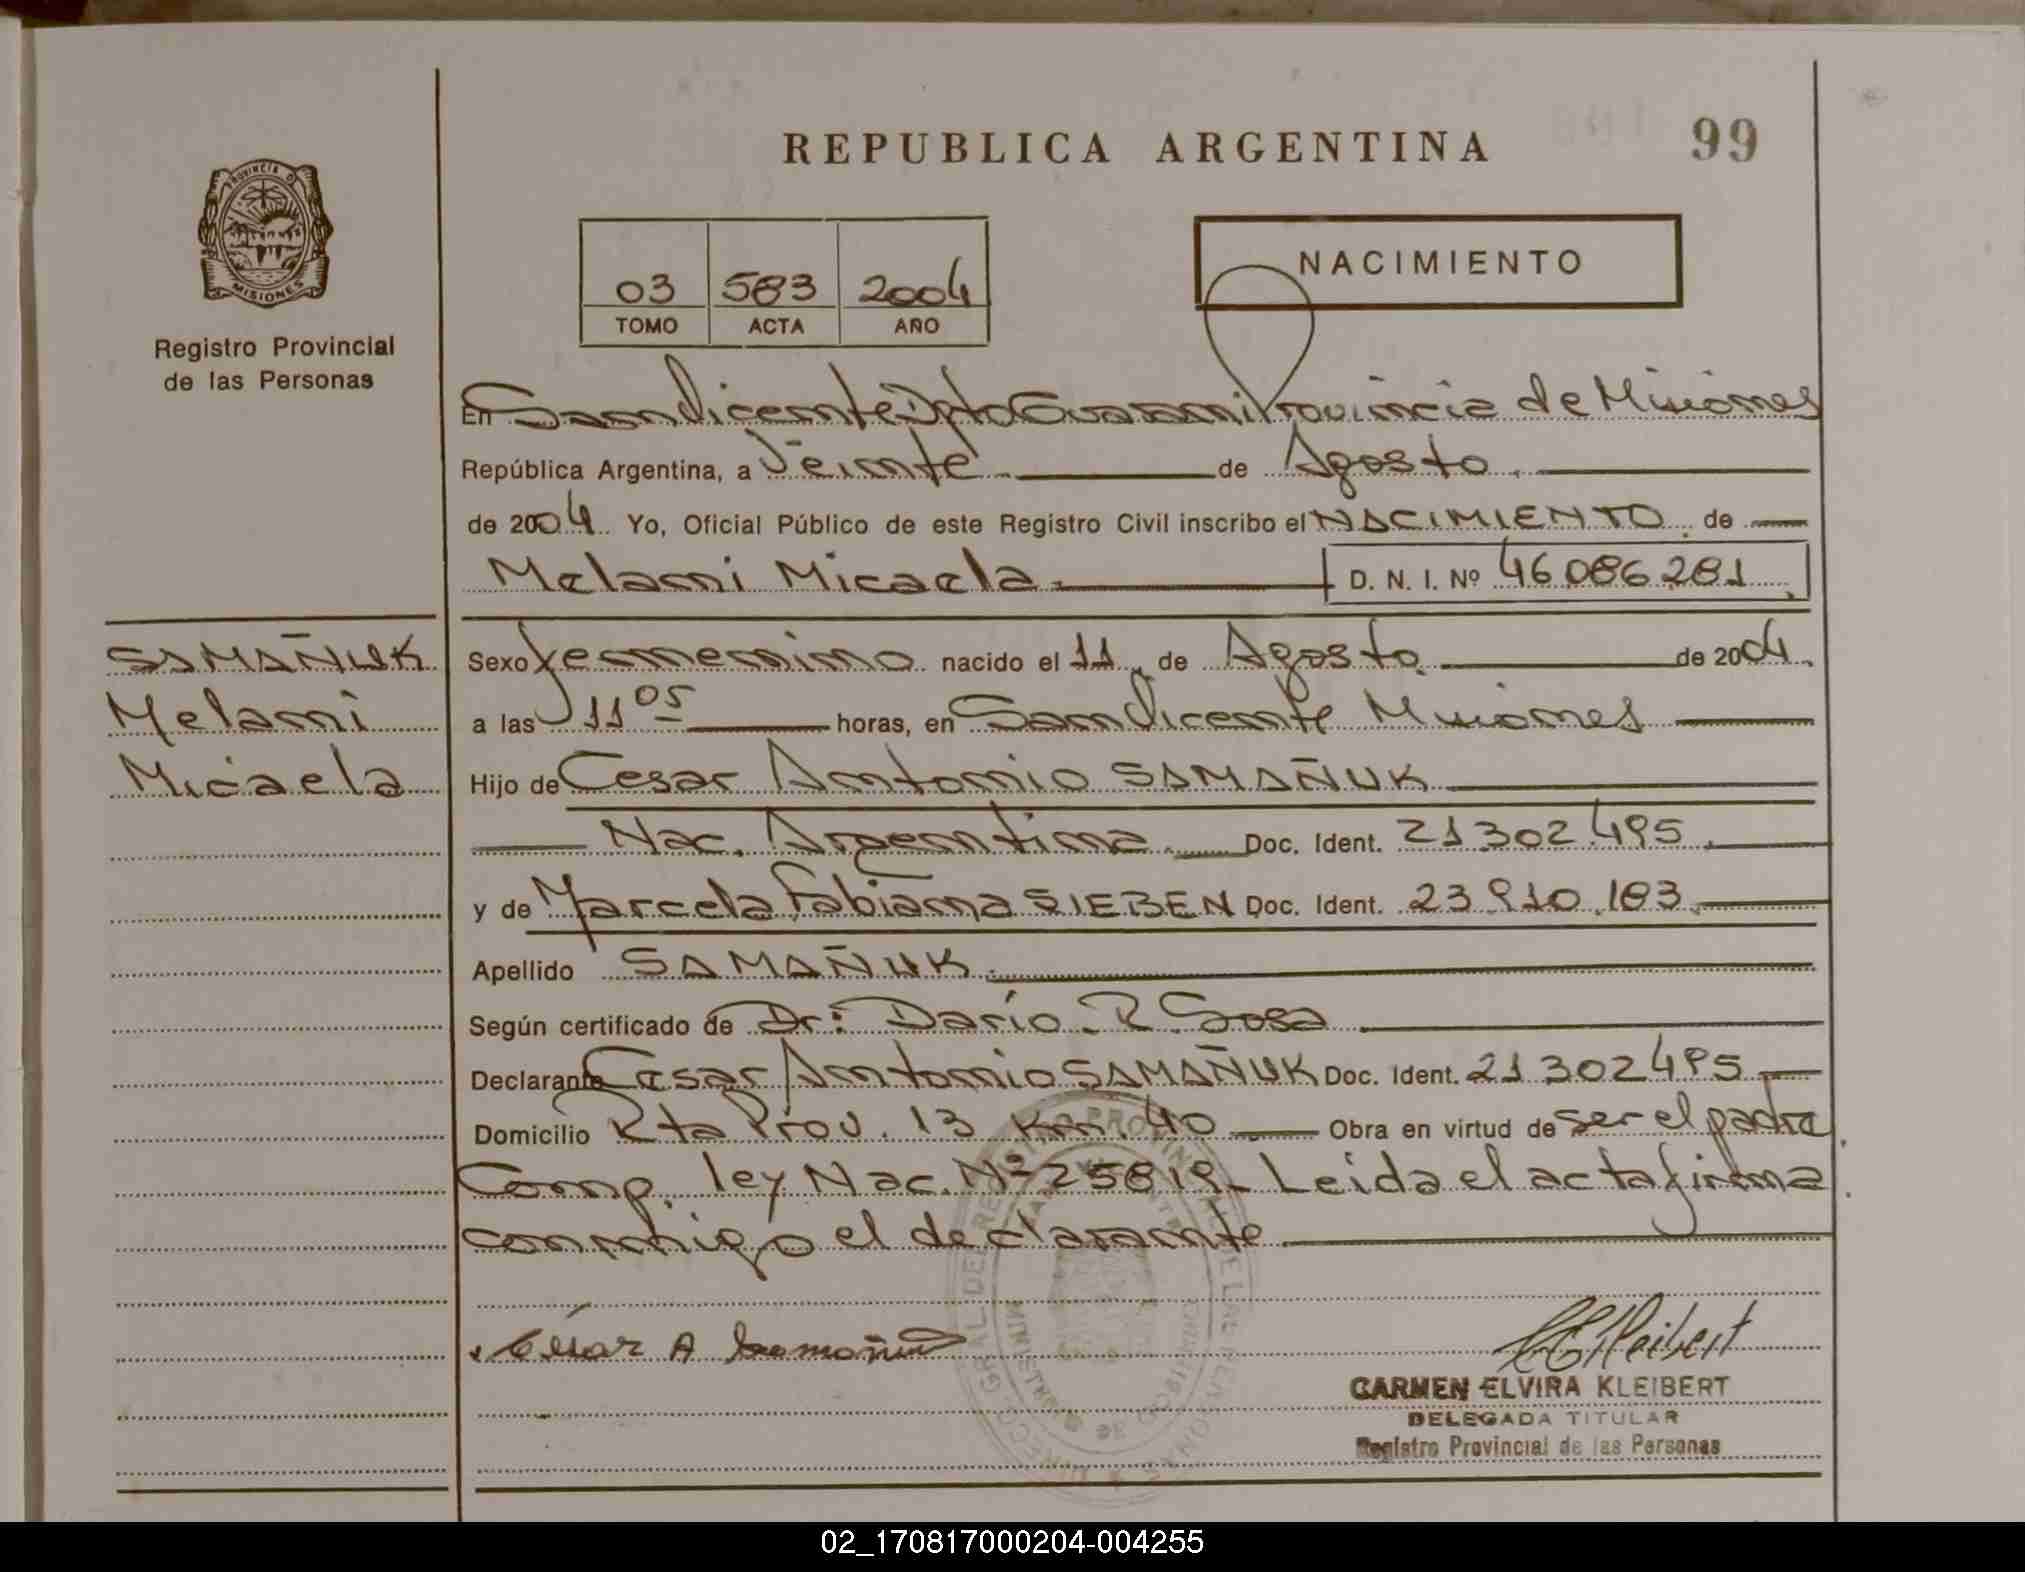 REPUBLICA ARGENTINA
99
PROVINCIA DE
MISIONES
Registro Provincial
de las Personas
03 583 2004
TOMO ACTA AÑO
NACIMIENTO
En San Vicente Dpto Guarani Provincia de Misiones
República Argentina, a Veinte de Agosto
de 2004 Yo, Oficial Público de este Registro Civil inscribo el NACIMIENTO de
Melani Micaela D. N. I. Nº 46 086 281
SAMAÑUK
Melani
Micaela
Sexo femenino nacido el 11 de Agosto de 2004
a las 11 05 horas, en San Vicente Misiones
Hijo de Cesar Antonio SAMAÑUK
Nac. Argentina Doc. Ident. 21 302 495
y de Marcela Fabiana SIEBEN Doc. Ident. 23.910.183
Apellido SAMAÑUK
Según certificado de Dr: Darío R Sosa
Declarante Cesar Antonio SAMAÑUK Doc. Ident. 21 302 495
Domicilio Rta Prov. 13 Km. 40 Obra en virtud de ser el padre
Comp. ley Nac. Nº 25819 - Leida el acta firma
conmigo el declarante
César A Samañuk
CARMEN ELVIRA KLEIBERT
DELEGADA TITULAR
Registro Provincial de las Personas
02_170817000204-004255